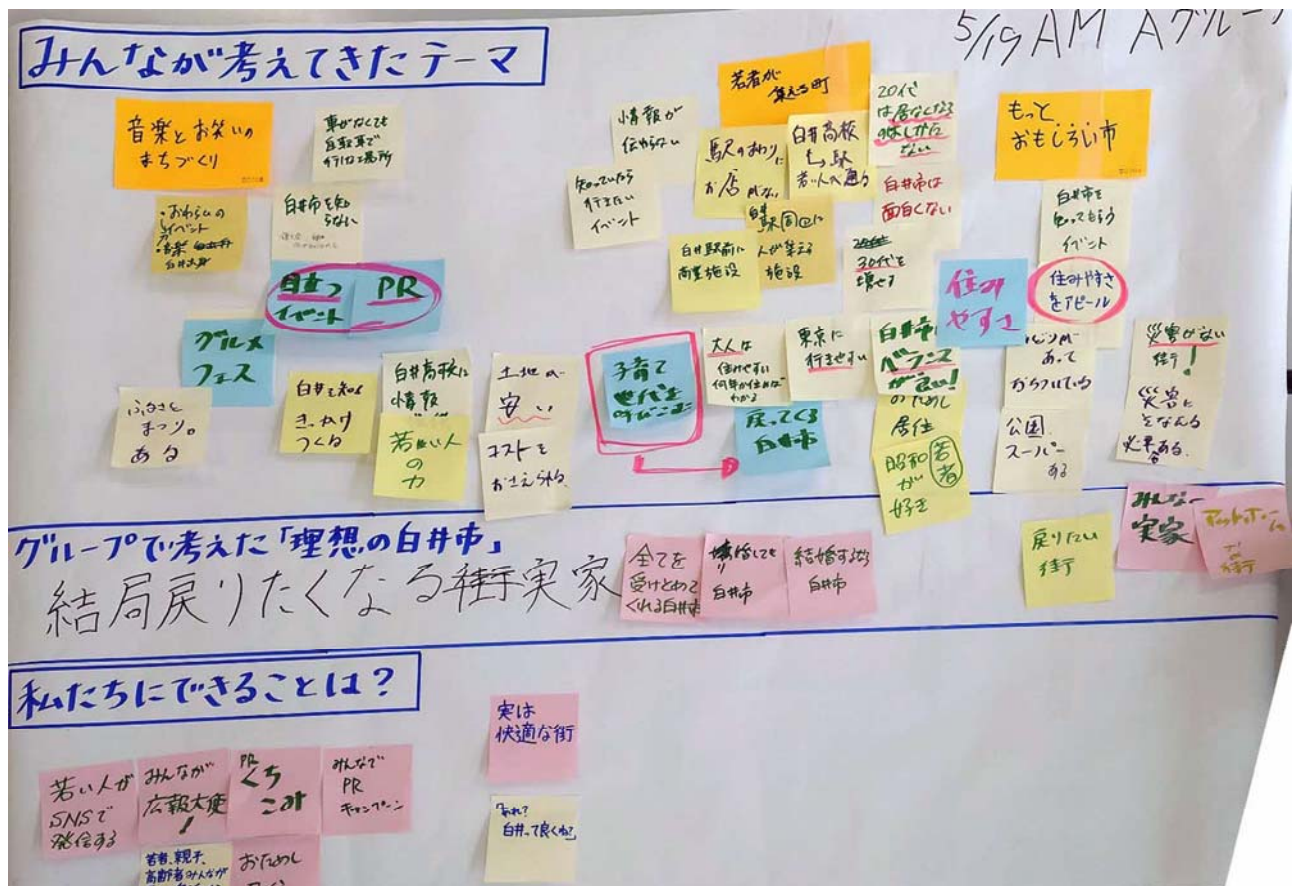 みんなが考えてきたテーマ
5/19 AM Aグループ
音楽とお笑いの
まちづくり
車がなくても
自転車で
行ける場所
・おわらいの
イベント
・音楽
白井市を知
らない
目立つ
イベント
PR
グルメ
フェス
ふるさと
まつり。
ある
白井を知る
きっかけ
つくる
白井高校に
情報
若い人
の
力
土地が
安い
コストを
おさえられる
情報が
伝わらない
知っていたら
行きたい
イベント
若者が
集える町
駅のまわりに
お店がない
白井高校
も駅
若い人が通る
駅周辺に
人が集える
施設
白井駅前に
商業施設
20代
は居なくなる
のはしかた
ない
白井市は
面白くない
30代を
増やす
子育て
世代を
呼びこむ
大人は
住みやすい
何年か住めば
わかる
東京に
行きやすい
戻ってくる
白井市
白井市
バランス
が良い!
のためし
居住
昭和
が
好き
若者
住み
やすさ
もっと
おもしろい市
白井市を
知ってもらう
イベント
住みやすさ
をアピール
あって
公園
スーパー
ある
災害がない
街!
災害に
そなえる
グループで考えた「理想の白井市」
結局戻りたくなる街実家
全てを
受けとめて
くれる白井市
白井市
結婚するなら
白井市
戻りたい
街
みんなの
実家
アットホーム
街
私たちにできることは?
若い人が
SNSで
発信する
みんなが
広報大使
!
PR
くち
こみ
みんなで
PR
キャンペーン
若者、親子、
高齢者みんなが
おためし
実は
快適な街
「あれ?
白井って良くね?」